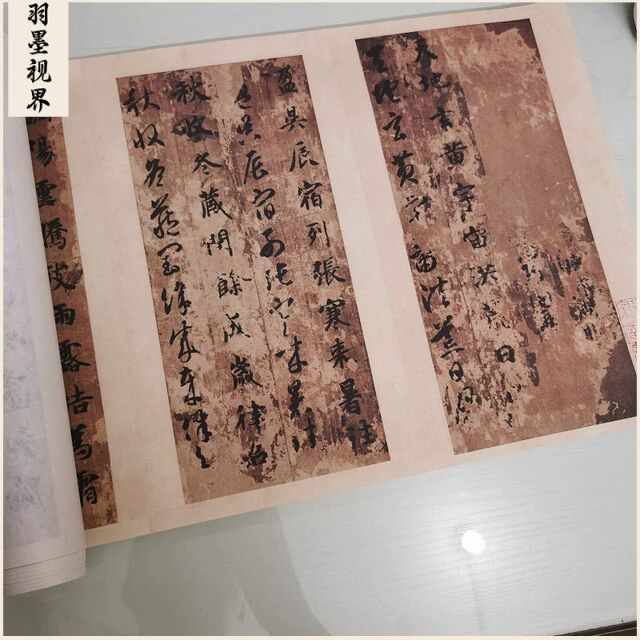 羽墨视界
天地玄黃宇宙洪荒日
天地玄黃宇宙洪荒日月
盈昃辰宿列張寒來暑往
盈昃辰宿列張寒來暑往
秋收冬藏閏餘成歲律召
秋收冬藏閏餘成歲律召
陽雲騰致雨露結為霜